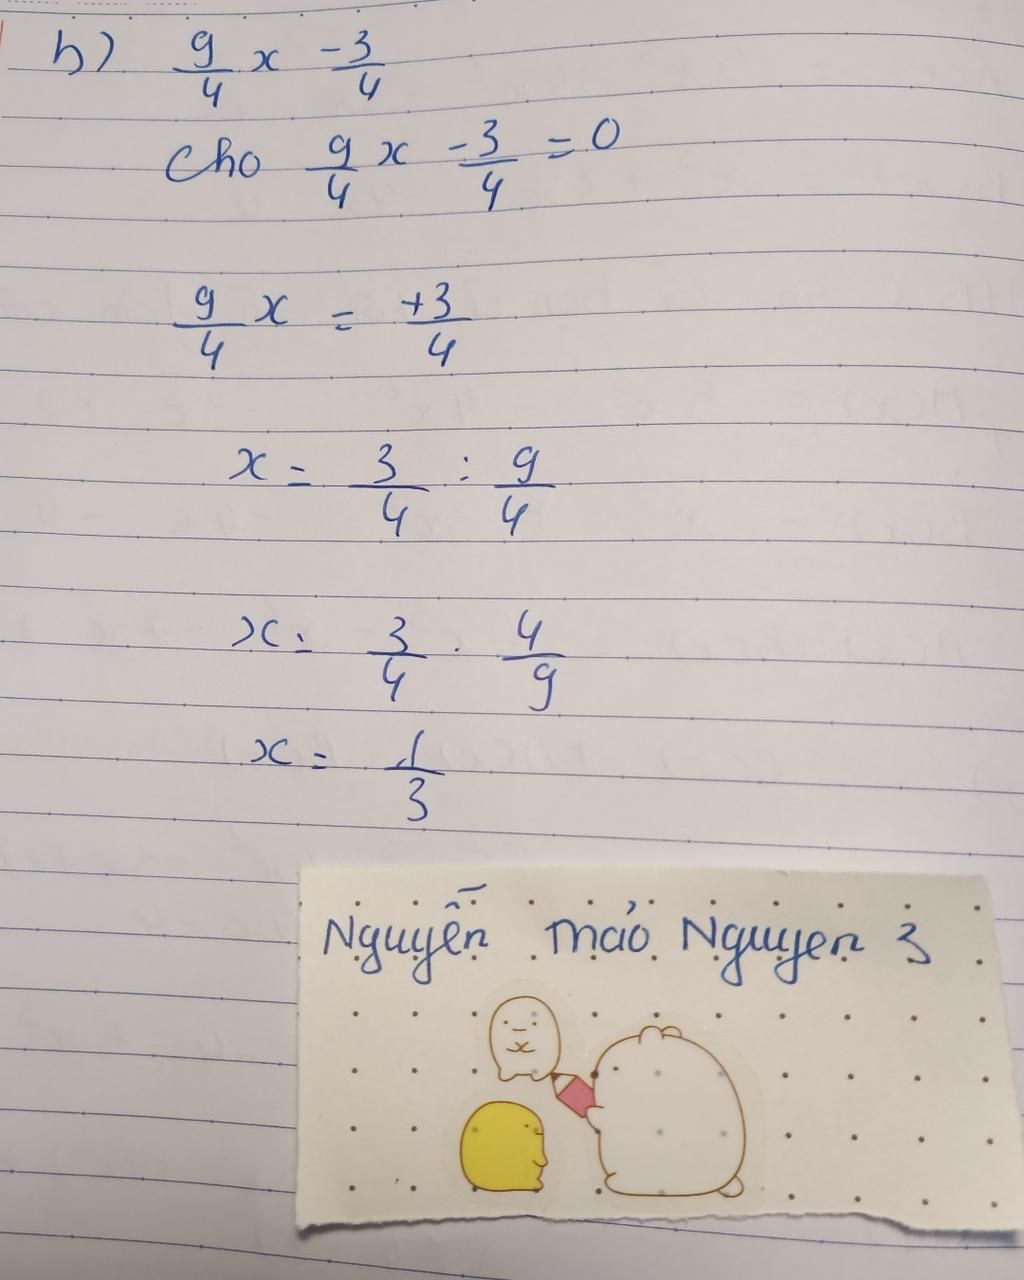 h) 9/4 x -3/4
Cho 9/4 x -3/4 = 0
9/4 x = +3/4
x = 3/4 : 9/4
x = 3/4 . 4/9
x = 1/3
Nguyễn mảo Nguyen 3